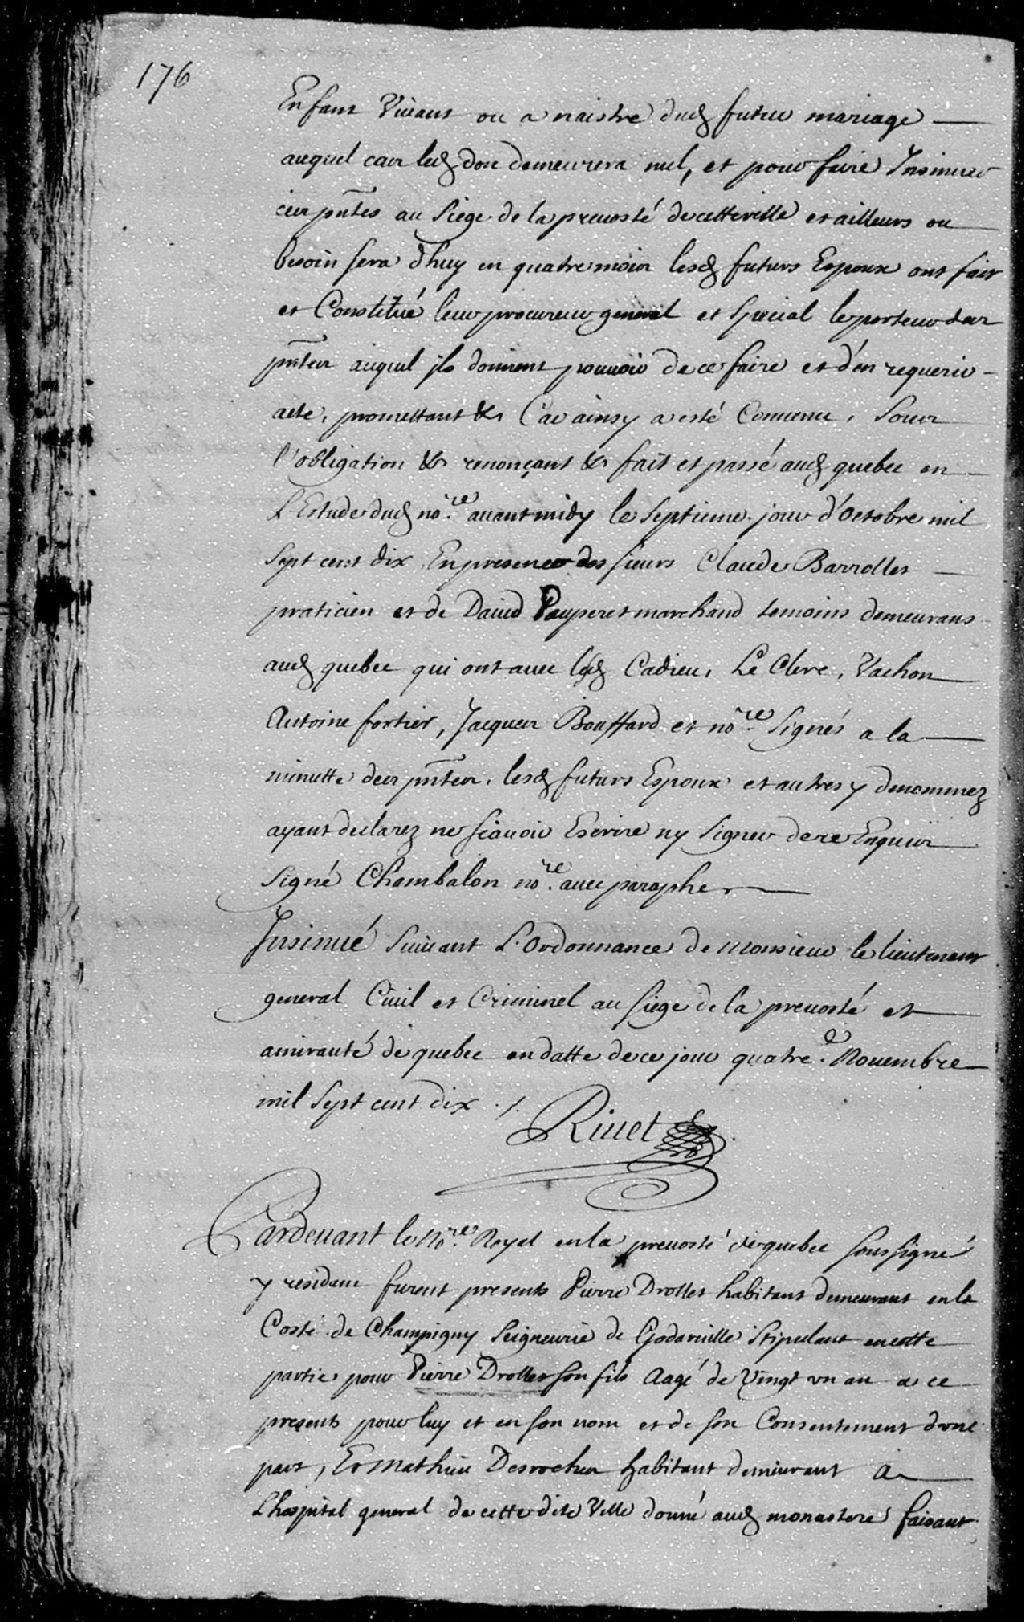 176
Enfans Viuans ou a naistre dud futur mariage
auquel cas led don demeurera nul, et pour faire Insinuer
ces pntes au Siege de la preuosté de cette ville et ailleurs ou
besoin sera d'huy en quatre mois lesd futurs Espoux ont fait
et Constitué leur procureur general et special le porteur des
pntes auquel ils donnent pouuoir de ce faire et d'en requerir
acte, promettant &c Car ainsy a esté Conuenu. Sous
l'obligation &c renonçant &c fait et passé aud quebec en
L'Estude dud no.re auant midy le Septieme jour d'Octobre mil
Sept cent dix En presence des sieurs Claude Barrolles
praticien et de Dauid Pauperet marchand temoins demeurans
aud quebec qui ont auec lesd Cadieu, Le Clerc, Vachon
Antoine fortier, Jacques Bouffard et no.re Signés a la
minutte des pntes. lesd futurs Espoux et autres y denommez
ayant declarez ne sçauoir Escrire ny Signer de ce Enquis
Signé Chambalon no.re auec paraphe
Insinué Suiuant L'Ordonnance de Monsieur le lieutenant
general Ciuil et Criminel au Siege de la preuosté et
amirauté de quebec en datte de ce jour quatre.e Nouembre
mil Sept cent dix ./
Riuet
Pardeuant le No.re Royal en la preuosté de quebec soussigné
y residant furent presents Pierre Drollet habitant demeurant en la
Coste de Champigny Seigneurie de Godaruille Stipulant en cette
partie pour Pierre Drollet son fils Aagé de Vingt vn an a ce
present pour luy et en son nom et de son Consentement d'vne
part, Et Mathieu Desroches habitant demeurant a
L'hospital general de cette dite Ville donné aud monastere faisant